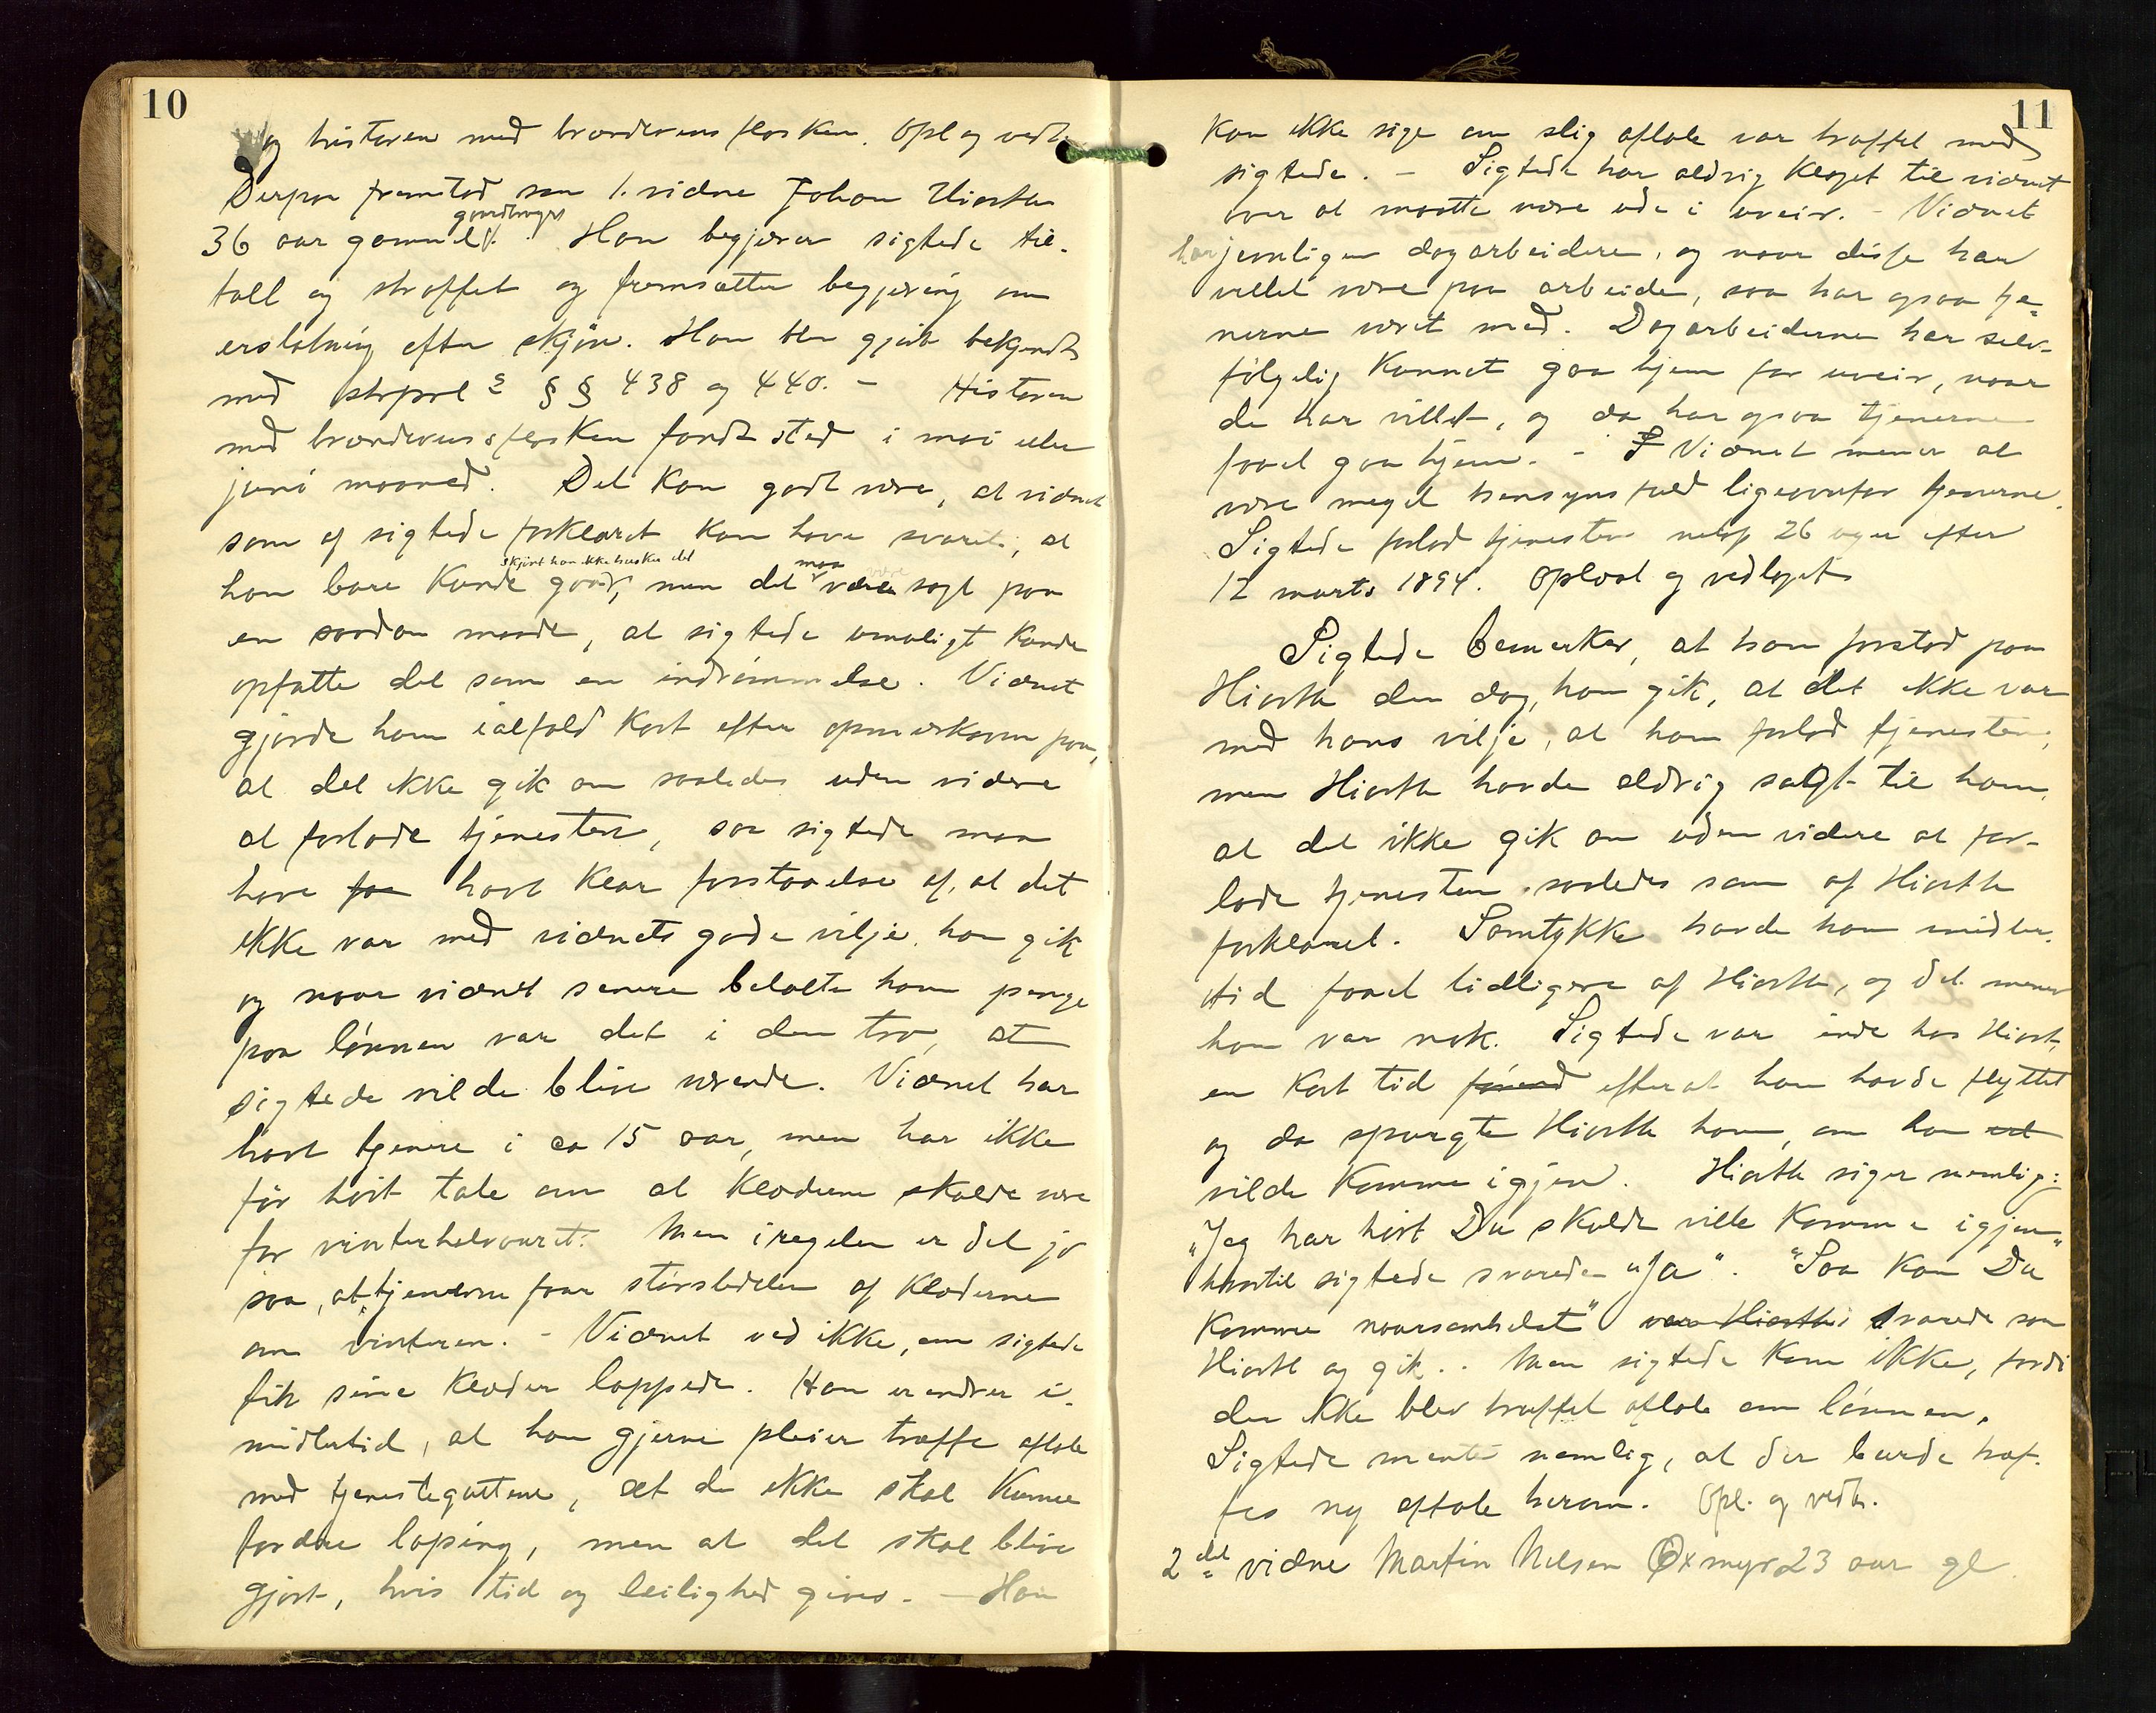 10
og historien med brændevinsflasken. Opl og vedt.
Derpaa fremstod som 1. vidne Johan Hiorth
gaardbruger
36 aar gammel. Han begjærer sigtede til-
talt og straffet og fremsætter begjæring om
erstatning efter skjøn. Han blev gjort bekjendt
med strprl §§ 438 og 440. - Historien
med brændevinsflasken fandt sted i mai eller
juni maaned. Det kan godt være, at vidnet
som af sigtede forklaret kan have svaret, at
skjönt han ikke husker det maa være
han bare kunde gaa, men det være sagt paa
en saadan maade, at sigtede umuligt kunde
opfatte det som en indrømmelse. Vidnet
gjorde ham ialfald kort efter opmerksom paa,
at det ikke gik an saaledes uden videre
at forlade tjenesten, saa sigtede maa
have faa havt klar forstaaelse af, at det
ikke var med vidnets gode vilje, han gik
og naar vidnet senere betalte ham penge
paa lønnen var det i den tro, at
sigtede vilde blive værende. Vidnet har
havt tjenere i ca 15 aar, men har ikke
før hørt tale om at klæderne skulde være
for vinterhalvaaret. Men i regelen er det jo
saa, at tjenerne faar størstedelen af klæderne
om vinteren. - Vidnet ved ikke, om sigtede
fik sine klæder lappede. Han erindrer i-
midlertid, at han gjerne pleier træffe aftale
med tjenestegutterne, at de ikke skal kunne
fordre laping, men at det skal blive
gjort, hvis tid og leilighed gives. - Han
11
kan ikke sige om slig aftale var truffet med
sigtede. - Sigtede har aldrig klaget til vidnet
over at maatte være ude i uveir. - Vidnet
har jevnligen dagarbeidere, og naar disse har
villet være paa arbeide, saa har ogsaa tje-
nerne været med. Dagarbeiderne har selv-
følgelig kunnet gaa hjem for uveir, naar
de har villet, og da har ogsaa tjenerne
faaet gaa hjem. - S Vidnet mener at
være meget hensynsfuld ligeoverfor tjenerne.
Sigtede forlod tjenesten netop 26 uger efter
12 marts 1894. Oplæst og vedtaget
Sigtede bemerker, at han forstod paa
Hiorth den dag, han gik, at det ikke var
med hans vilje, at han forlod tjenesten,
men Hiorth havde aldrig sagt til ham,
at det ikke gik an uden videre at for-
lade tjenesten saaledes som af Hiorth
forklaret. Samtykke havde han imidler-
tid faaet tidligere af Hiorth, og det mener
han var nok. Sigtede var inde hos Hiorth
en kort tid førend efterat han havde flyttet
og da spurgte Hiorth ham, om han vil
vilde komme igjen. Hiorth siger nemlig:
"Jeg har hørt Du skulde ville komme igjen"
hvortil sigtede svarede "Ja". "Saa kan Du
komme naarsomhelst" var Hiorths svarede saa
Hiorth og gik. . Men sigtede kom ikke, fordi
der ikke blev truffet aftale om lønnen.
Sigtede mente nemlig, at der burde træf-
fes ny aftale herom. Opl. og vedt.
2det vidne Martin Nilsen Øxmyr 23 aar gl.